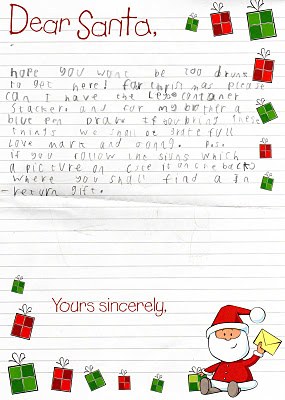 Dear Santa,
hope you wont be too drunk
to get here! for christ mas please
can I have the Lego container
stacker and for my brother a
blue pen please If you bring these
things we shall be grate full
Love mark and P.s.
if you follow the signs which
a picture of on the back)
where you shall find a In
return gift.
Yours sincerely,